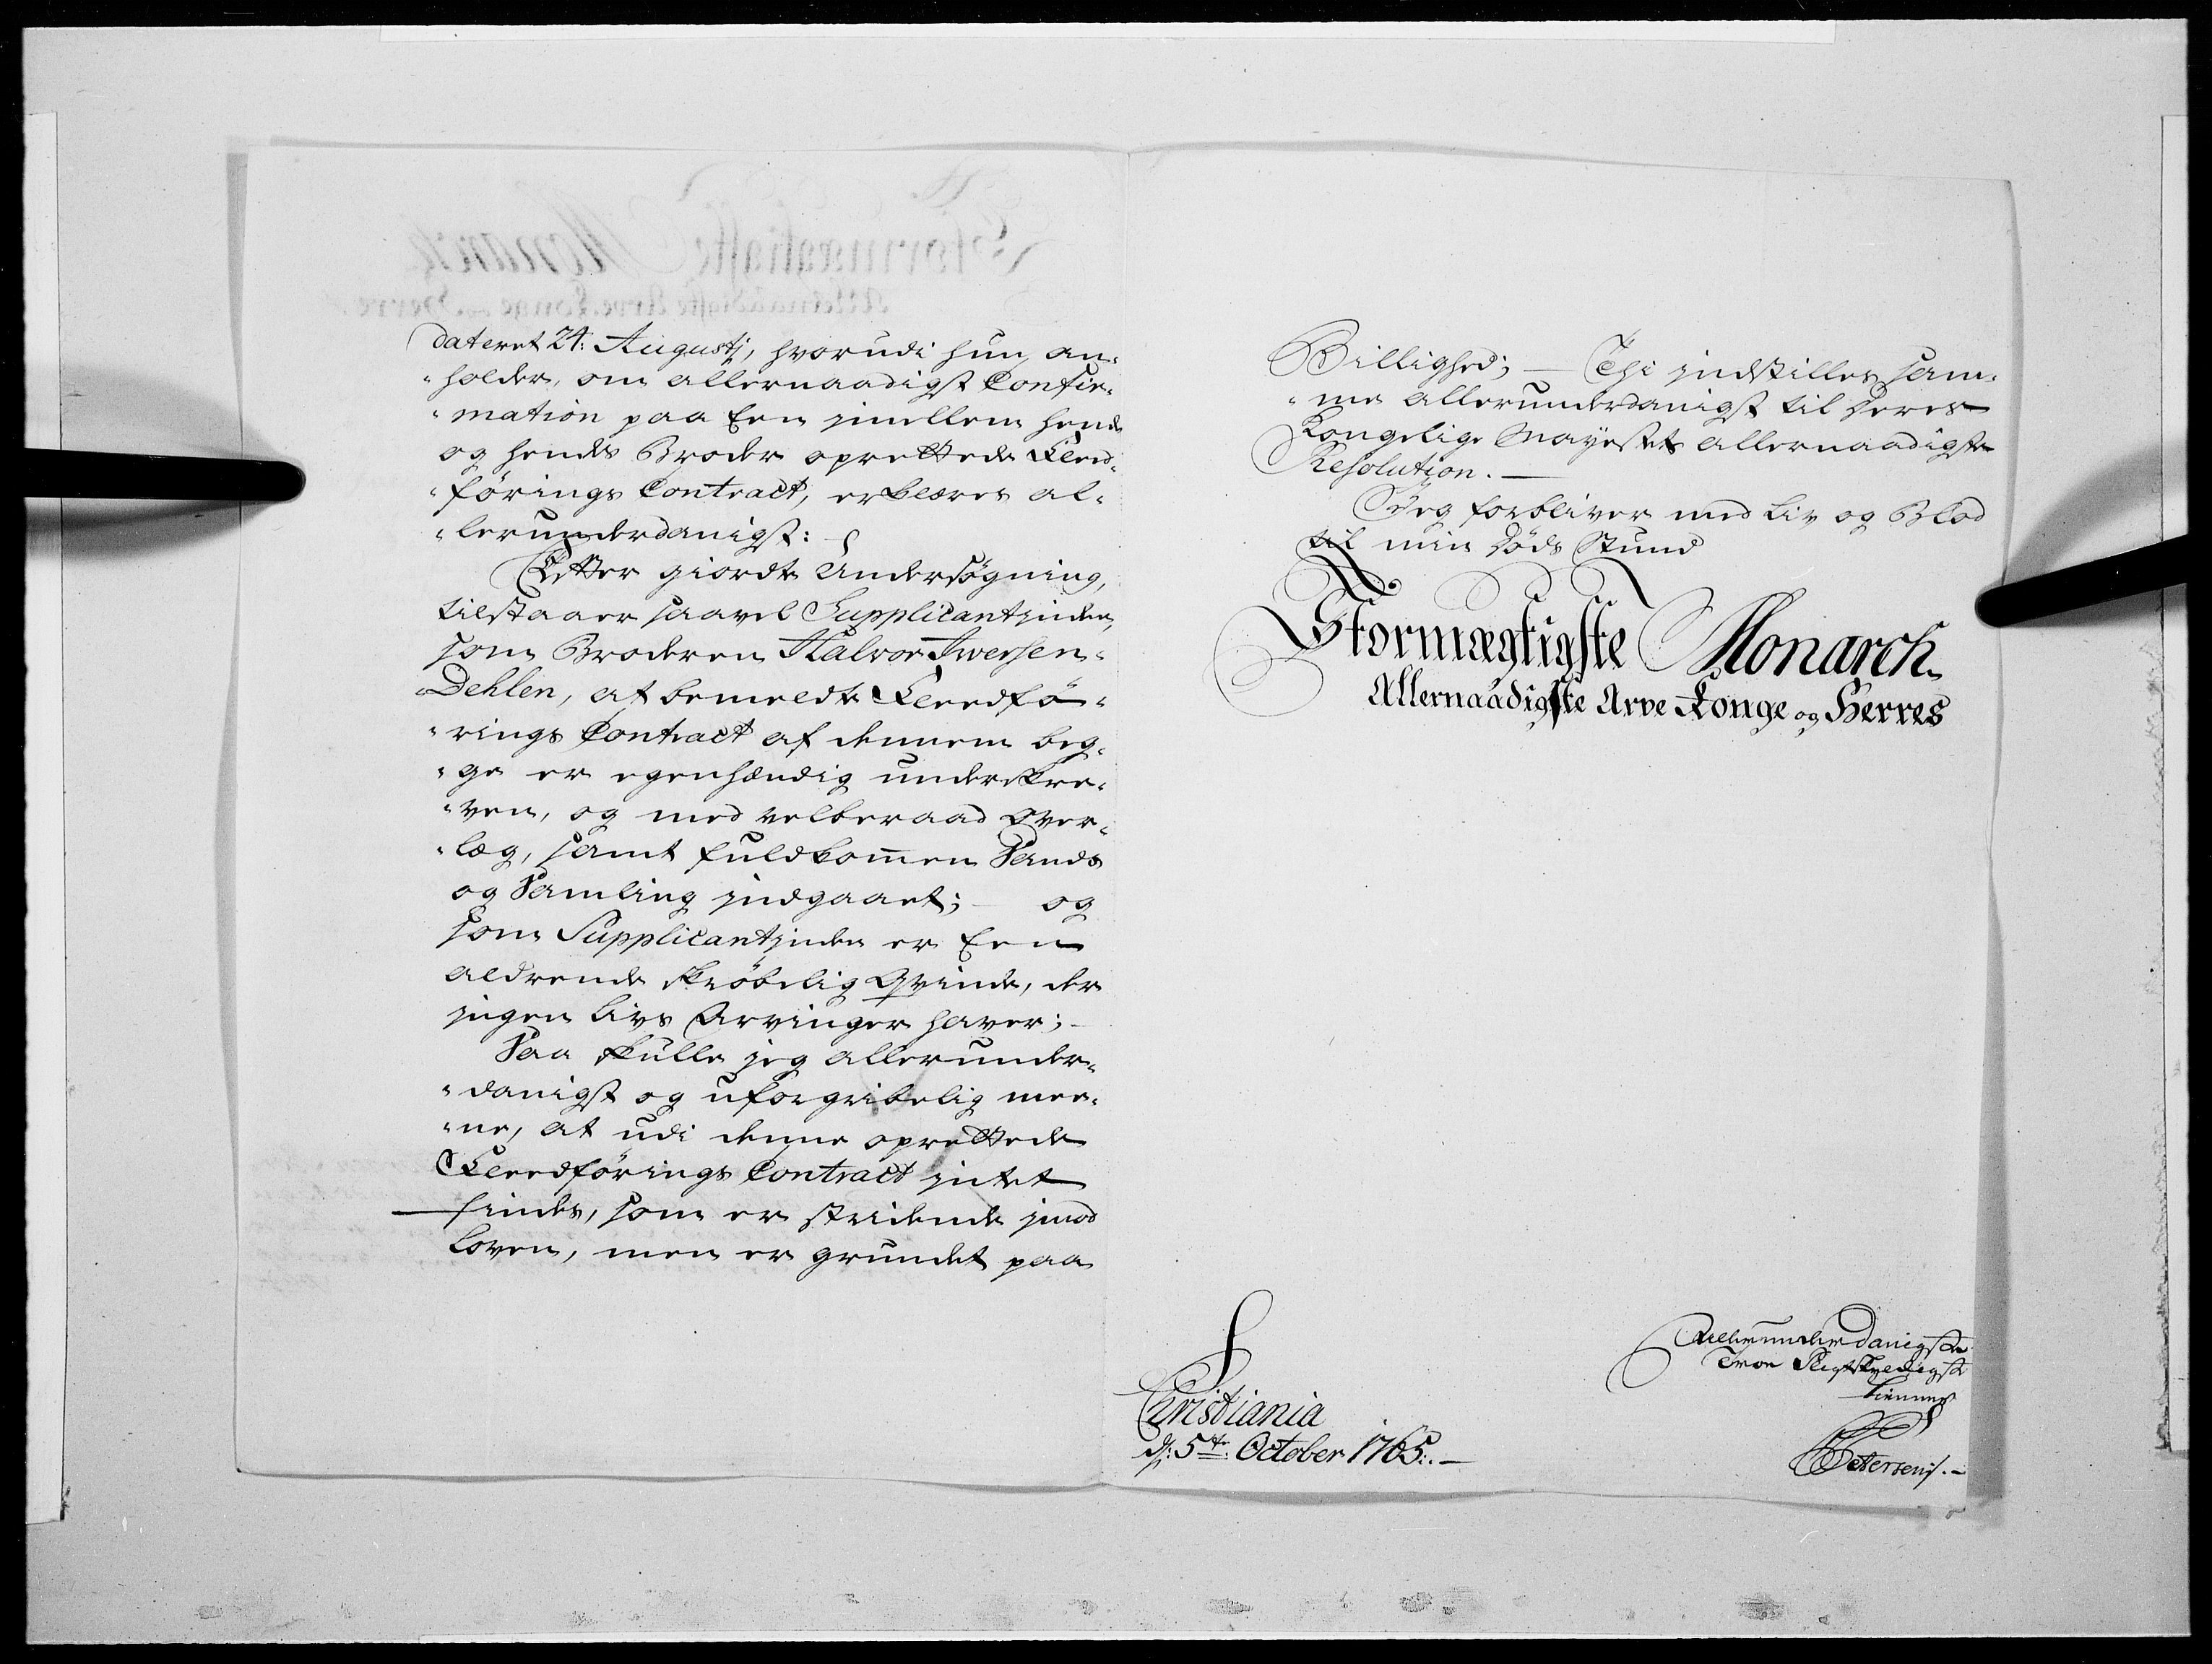 dateret 24: Augustj, hvorudi hun, an-
"holder, om allernaadigst Confir-
"mation paa Een jmellem hende
og hendes Broder oprettede Fled-
"førings Contract, erklæres al-
"lerunderdanigst:
Efter giordte Undersøgning,
tilstaaer saavel Supplicantjnden,
som Broderen Halvor Iversen
Dehlen, at bemeldte Fleedfø-
"rings Contract af dennem beg-
"ge er egenhændig underskre-
"ven, og med velberaad Over-
"læg, samt fuldkom̅en Sands
og Samling jndgaaet; og
som Supplicantjnden er Een
aldrende skrøbelig Qvinde, der
jngen Livs Arvinger haver;
Saa skulle jeg allerunder-
"danigst og uforgribelig mee-
"ne, at udi denne oprettede
Fleedførings Contract jntet
findes, som er stridende jmod
Loven, men er grundet paa
Billighed; – Thi jndstilles sam-
"me allerunderdanigst til Deres
Kongelige Mayestets allernaadigste
Resolution. –
Jeg forbliver med Liv og Blod
til min Døds Stund
Stormægtigste Monarch
Allernaadigste Arve Konge og Herres
Allerunderdanigste
Troe Pligtskyldigste
tienner
Christiania
d: 5te October 1765. –
Petersen. –